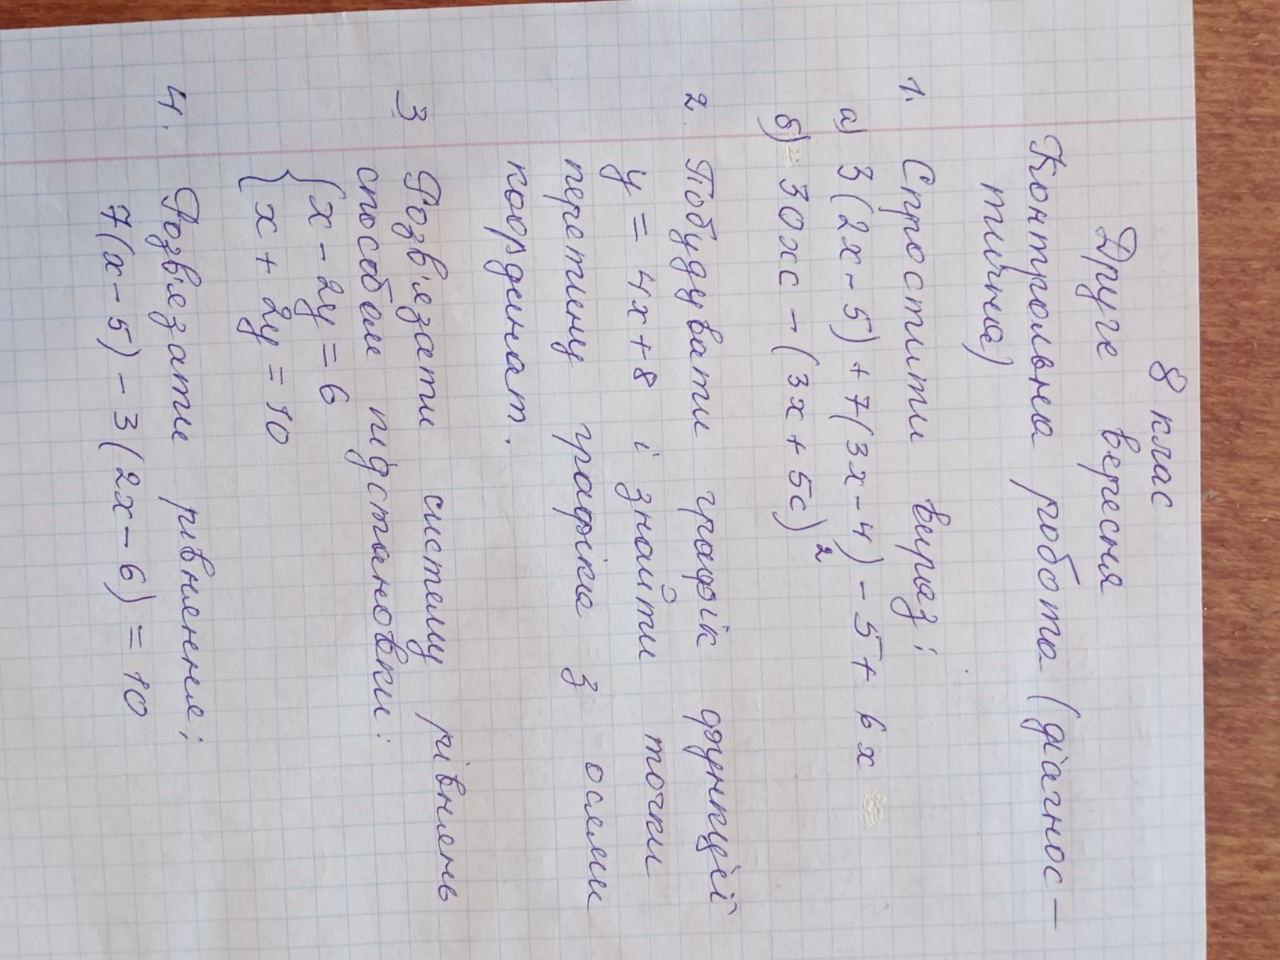 8 клас
Друге вересня
Контрольна робота (діагнос-
тична)
1. Спростити вираз:
а) 3(2x-5)+7(3x-4)-5+6x
б) 30xc-(3x+5c)²
2. Побудувати графік функції
y=4x+8 і знайти точки
перетину графіка з осями
координат.
3 Розв'язати систему рівнень
способом підстановки:
{x-2y=6
{x+2y=10
4. Розв'язати рівнення:
7(x-5)-3(2x-6)=10